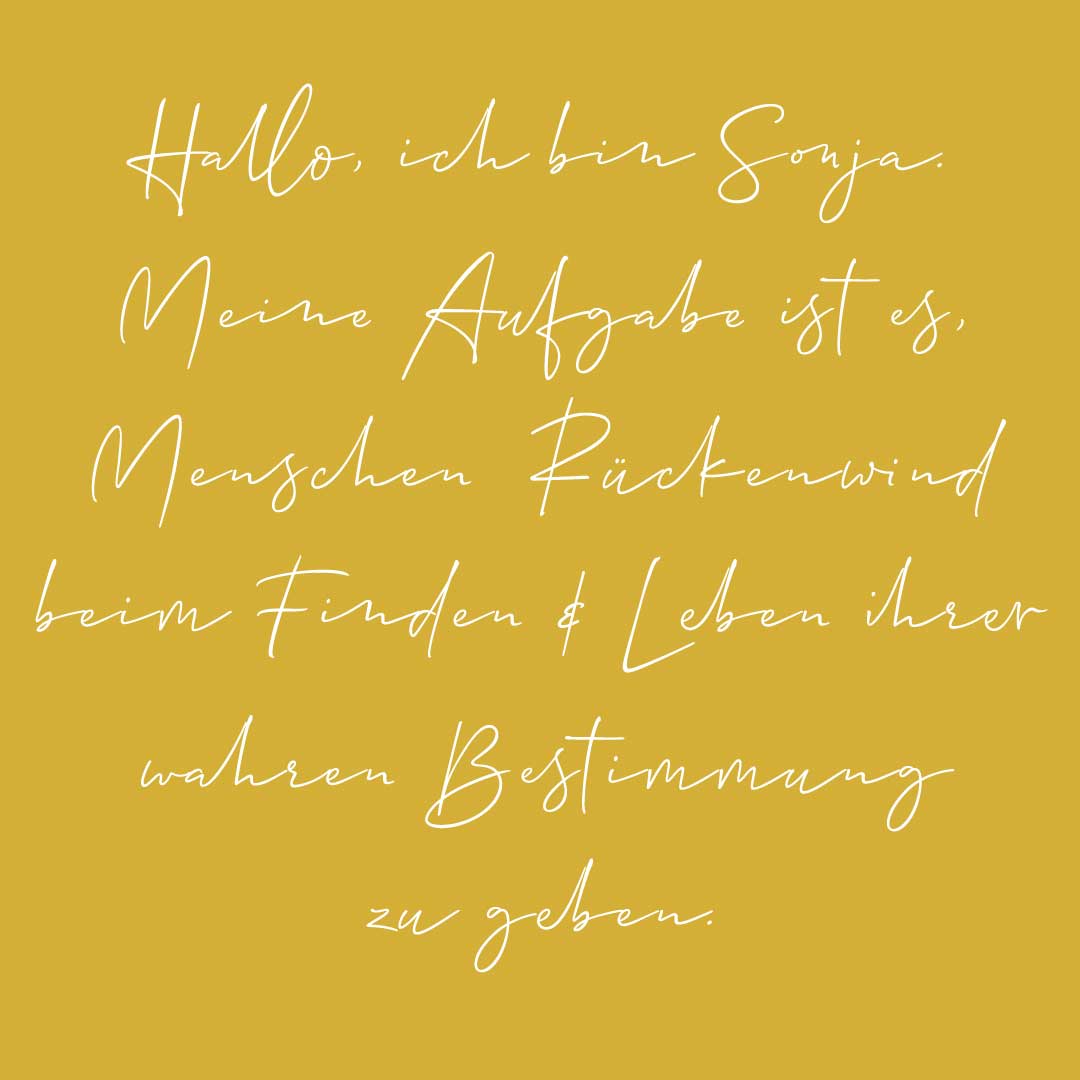 Hallo, ich bin Sonja.
Meine Aufgabe ist es,
Menschen Rückenwind
beim Finden & Leben ihrer
wahren Bestimmung
zu geben.